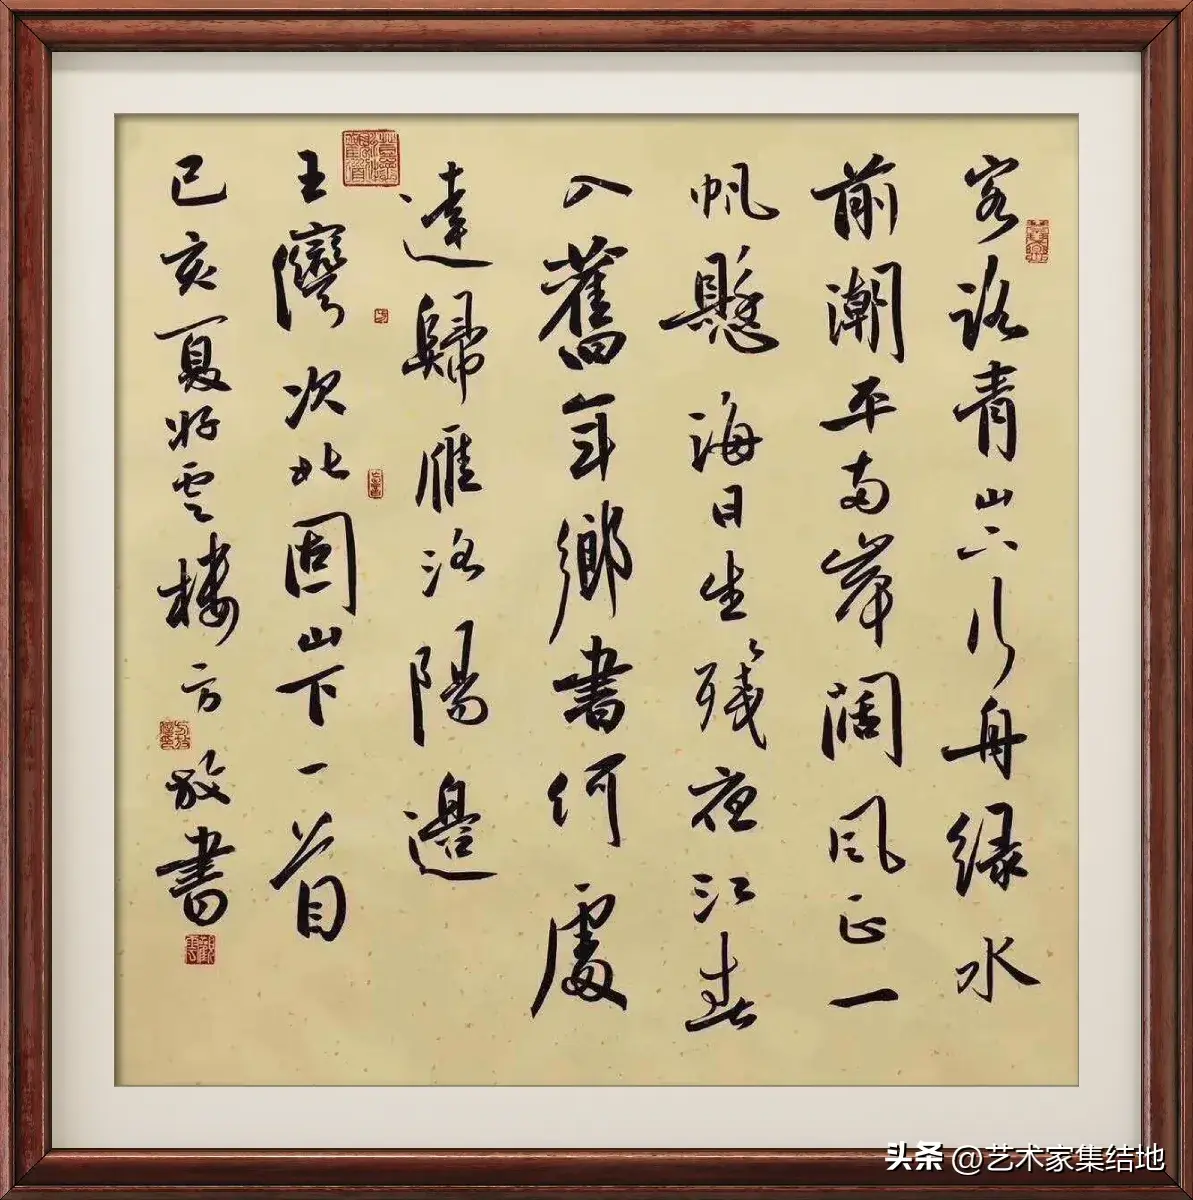 客路青山下行舟綠水
前潮平兩岸闊風正一
帆懸海日生殘夜江春
入舊年鄉書何處
達歸雁洛陽邊
王灣次北固山下一首
己亥夏雲樓方放書
头条 @艺术家集结地